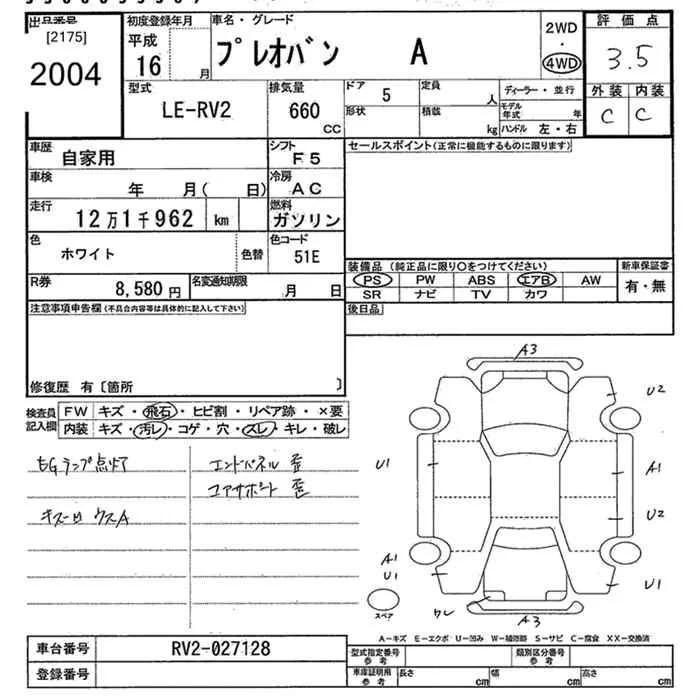 出品番号
[2175]
2004
初度登録年月
平成
16 月
車名・グレード
プレオバン A
2WD
・
4WD
評価点
3.5
外装 内装
C C
型式
LE-RV2
排気量
660
CC
ドア
5
定員
人
形状
積載
kg
ディーラー・並行
モデル年式 年
ハンドル 左・右
車歴
自家用
シフト
F5
車検
年 月( 日)
冷房
AC
走行
12万1千962 km
燃料
ガソリン
色
ホワイト
色替
色コード
51E
R券
8,580円
名変通知期限
月 日
セールスポイント(正常に機能するものに限ります)
装備品 (純正品に限り○をつけてください)
PS PW ABS エアB AW
SR ナビ TV カワ
新車保証書
有・無
後日品
注意事項申告欄(不具合内容等は具体的に記入して下さい)
修復歴 有〔箇所 〕
検査員記入欄
FW キズ・飛石・ヒビ割・リペア跡・×要
内装 キズ・汚レ・コゲ・穴・スレ・キレ・破レ
EGランプ点灯
エンドパネル 歪
コアサポート 歪
キズ凹 ウスA
A3
U2
U1
A1
U2
A1
U1
U1
ワレ
A3
スペア
A-キズ E-エクボ U-凹み W-補修跡 S-サビ C-腐食 XX-交換済
車台番号
RV2-027128
登録番号
型式指定番号
参考
類別区分番号
参考
車庫証明用
参考
長さ cm
幅 cm
高さ cm